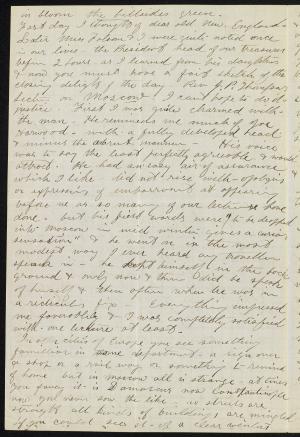 in bloom the hillsides green.
First day I thought of dear old New England -
Later Miss Folsom & I were quite noted once
in our lives - the President head of our treasures
before 2 hours as I learned from his daughter
& now you must have a faint sketch of the
closing delight of the day Rev J.P. Thompson's
lecture on Moscow & I can't hope to do it
justice - First I was quite charmed with
the man - He reminds me much of Geo.
Harwood - with a fully developed head
& minus the abrupt manner - His voice
was to say the least perfectly agreeable & would
attract - He had an easy sort of assurance
which I like did not rise with apologies
or expressing of embarrassment at appearing
before us as so many of our lecturers have
done - but his first words were "To be dropped
into Moscow in mid winter gives a curious
sensation" & he went on in the most
modest way I ever heard any traveller
speak in - he kept himself in the back
ground & only now & then did he speak
of himself & then often when he was in
a ridiculous fix - Everything impressed
me favorably & I was completely satisfied
with one lecture at least -
In other cities of Europe you see something
familiar in some department - a sign over
a shop or a rail way or something to remind
of home but in Moscow all is strange - at times
you fancy it is Damascus now Constantinople
now you never saw the like - in streets are
strength all kinds of buildings are mingled
if you could see it - of a clear winter